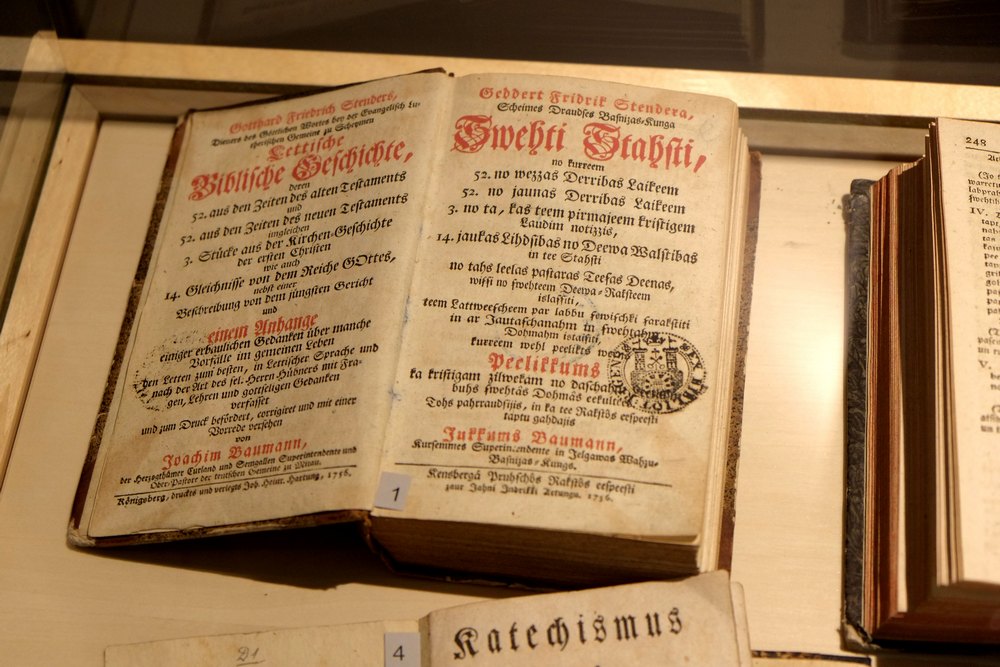 Gotthard Friedrich Stenders,
Dieners des Göttlichen Wortes bey der Evangelisch Lu-
therischen Gemeine zu Scheymen
Lettische
Biblische Geschichte,
deren
52. aus den Zeiten des alten Testaments
und
52. aus den Zeiten des neuen Testaments
imgleichen
3. Stücke aus der Kirchen-Geschichte
der ersten Christen
wie auch
14. Gleichnisse von dem Reiche GOttes,
nebst einer
Beschreibung von dem jüngsten Gericht
und
einem Anhange
einiger erbaulichen Gedanken über manche
Vorfälle im gemeinen Leben
den Letten zum besten, in Lettischer Sprache und
nach der Art des sel. Herrn Hübners mit Fra-
gen, Lehren und gottseligen Gedanken
verfasset
und zum Druck befördert, corrigiret und mit einer
Vorrede versehen
von
Joachim Baumann,
der Herzogthümer Curland und Semgallen Superintendente und
Ober-Pastore der teutschen Gemeine zu Mitau.
Königsberg, druckts und verlegts Joh. Heinr. Hartung, 1756.
Geddert Fridrik Stendera,
Scheimes Draudses Basnizas-Kunga
Swehti Stahsti,
no kurreem
52. no wezzas Derribas Laikeem
52. no jaunas Derribas Laikeem
3. no ta, kas teem pirmajeem kristigem
Laudim notizzis,
14. jaukas Lihdsibas no Deewa Walstibas
in tee Stahsti
no tahs leelas pastaras Teesas Deenas,
wissi no swehteem Deewa-Raksteem
islassiti,
teem Lattweescheem par labbu sewischki sarakstiti
in ar Jautaschanahm in swehtahm
Dohmahm istaisiti,
kurreem wehl peelikts
Peelikkums
ka kristigam zilwekam no daschab
buhs swehtas Dohmas
Tohs pahrraudsijis, in ka tee Rakstôs eespeesti
taptu gahdajis
Jukkums Baumann,
Kursemmes Superintendente in Jelgawas Wahzu-
Basnizas-Kungs.
Kensbergâ Druhschôs Rakstôs eespeesti
1756.
1
4
D1
Katechismus
248
IV.
V.